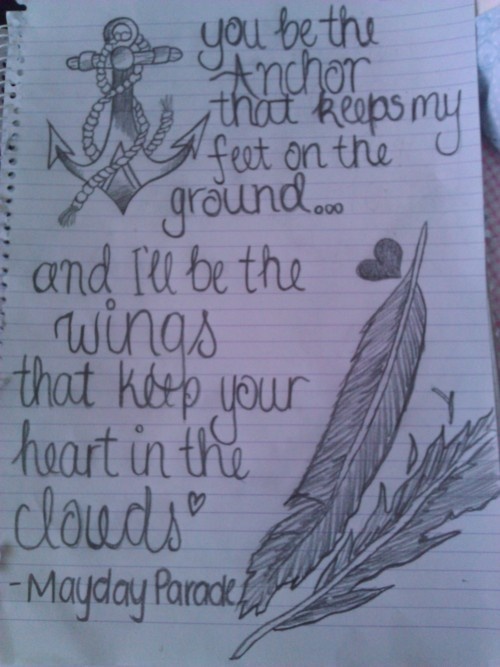 you be the
Anchor
that keeps my
feet on the
ground...
and I'll be the
wings
that keep your
heart in the
clouds
-Mayday Parade